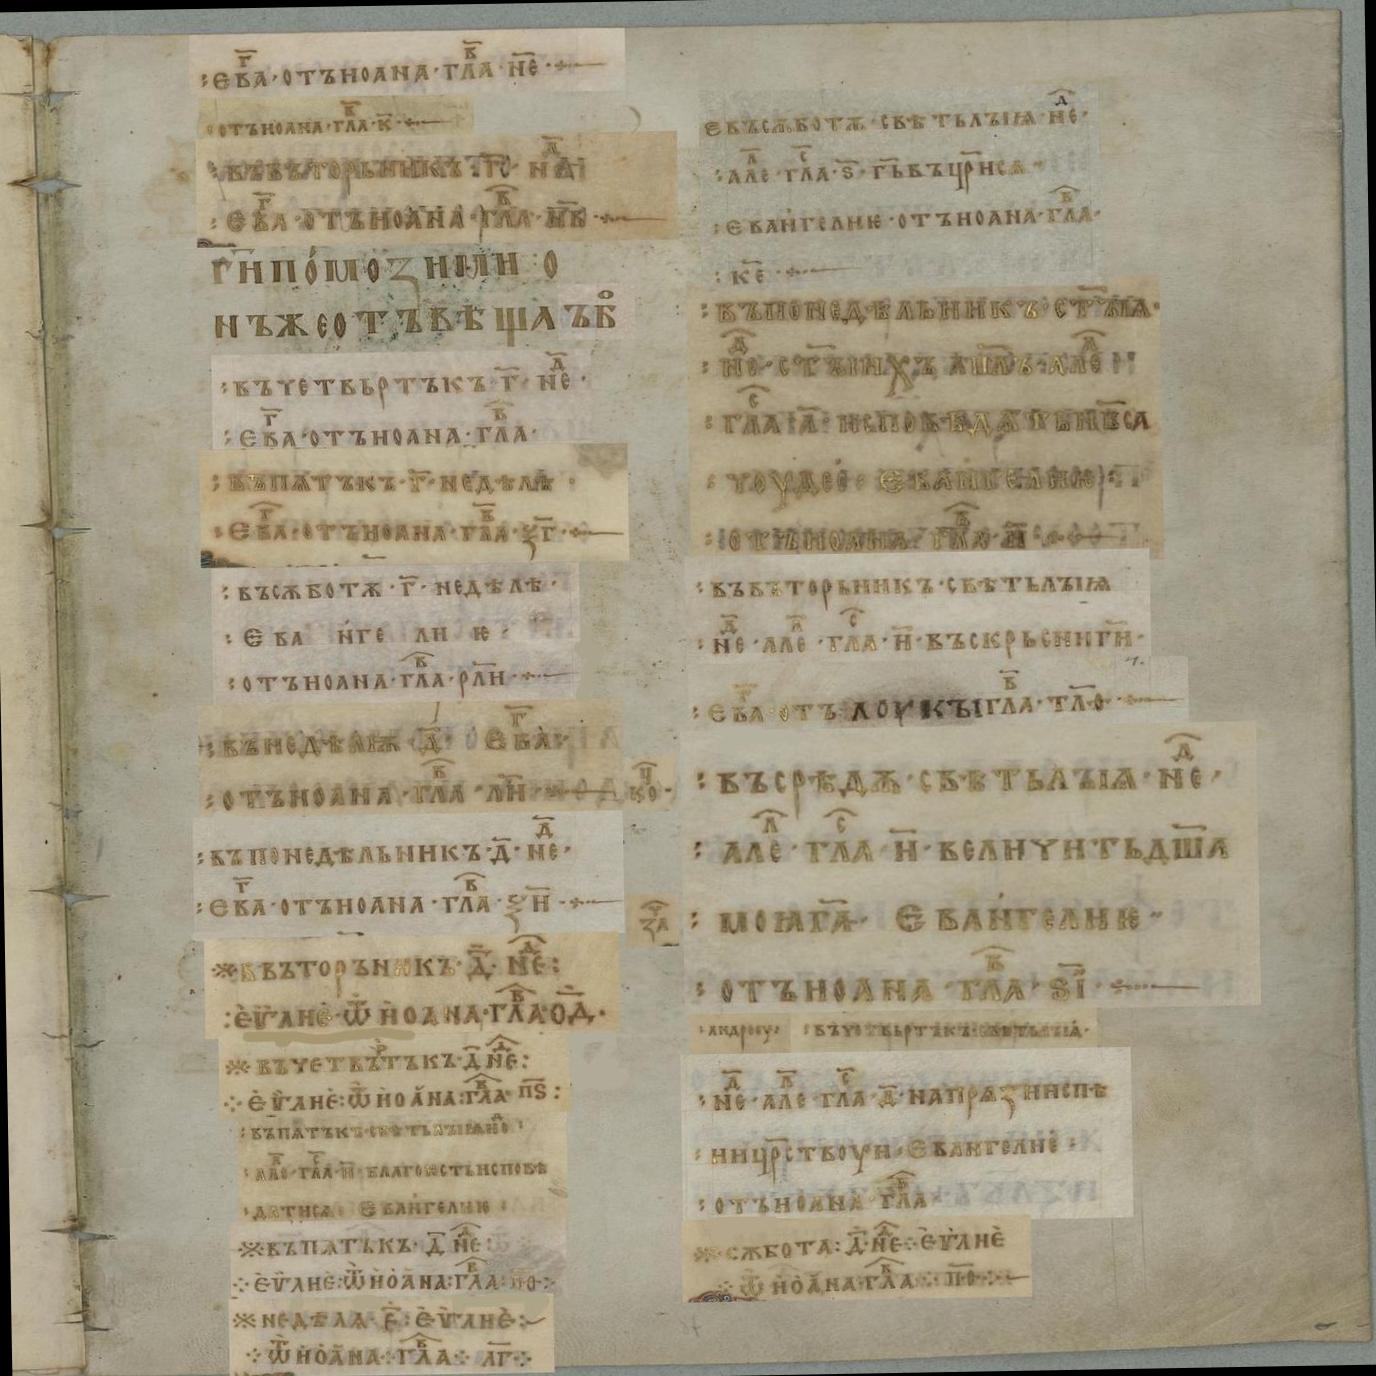 :ЕВ҃А·ОТЪИОАНА·ГЛ҃А·Н҃Є·
ОТЪИОАНА·ГЛ҃А·К҃·
ВЪВЪТОРЬНИКЪ·Г҃·Н
:ЕВ҃А·ОТЪИОАНА·ГЛ҃А·Н҃В·
Г҃ИПОМОЗИ
НЪЖЕОТЪВѢЩАЪБ҃О
:ВЪЧЕТВЬРТЪКЪ·Г҃·Н҃Є·
:ЕВ҃А·ОТЪИОАНА·ГЛ҃А·
:ВЪПѦТЪКЪ·Г҃·НЕДѢЛѢ·
:ЕВ҃А·ОТЪИОАНА·ГЛ҃А·Ѯ҃Г·
:ВЪСѪБОТѪ·Г҃·НЕДѢЛѢ·
:ЕВАНГЕЛИѤ·
:ОТЪИОАНА·ГЛ҃А·РЛ҃И·
:ВЪНЕДѢЛѬ·Д҃·ЕВ҃А·
:ОТЪИОАНА·ГЛ҃А·Л҃И·
:ВЪПОНЕДѢЛЬНИКЪ·Д҃·Н҃Є·
:ЕВ҃А·ОТЪИОАНА·ГЛ҃А·Ѯ҃И·
※ВЪТОРЪНИКЪ·Д҃·Н҃Є:
:ЕѴ҃ЛИЕ·Ѿ ИОАНА·ГЛ҃А·О҃Д·
※ВЪЧЕТВЪТЪКЪ·Д҃Н҃Є:
⁘ЕѴ҃ЛИЕ:Ѿ ИОАНА:ГЛ҃А·П҃Ѕ:
:ВЪПѦТЪКЪ·СВѢТЬЛЫѨ
:АЛ҃Е·ГЛ҃А·И҃·БЛАГО ЕСТЬИСПОВѢ
·ДАТИСѦ·ЕВАНГЕЛИѤ:
※ВЪПѦТЪКЪ·Д҃ Н҃Є:
⁘ЕѴ҃ЛИЕ:Ѿ ИОАНА:ГЛ҃А:П҃О:
※НЕДѢЛѦ·Е҃:ЕѴ҃ЛИЕ:
⁘Ѿ ИОАНА:ГЛ҃А⁘Л҃Г⁘
ЕВЪСѪБОТѪ·СВѢТЬЛЫѨ·Н҃Є·
:АЛ҃Е·ГЛ҃А·Ѕ҃·Г҃ЬВЪЦР҃ИСѦ
:ЕВАНГЕЛИѤ·ОТЪИОАНА·ГЛ҃А·
:К҃Є·
:ВЪПОНЕДѢЛЬНИКЪ·СТ҃ЫѨ·
:Н҃Є·СТ҃ЫИХЪ АП҃ЛЪ·АЛ҃Е
:ГЛ҃А·А҃·ИСПОВѢДѦТЬН҃БСА
:ЧОУДЕС·ЕВАНГЕЛИѤ
:ОТЪИОАНА·ГЛ҃А·
:ВЪВЪТОРЬНИКЪ·СВѢТЬЛЫѨ
:Н҃Є·АЛ҃Е·ГЛ҃А·И҃·ВЪСКРЬСНИГ҃И·
:ЕВ҃А·ОТЪ ЛОУКЫ ГЛ҃А·ТЛ҃О·
:ВЪСРѢДѪ·СВѢТЬЛЫѨ·Н҃Є·
:АЛ҃Е·ГЛ҃А·И҃·ВЕЛИЧИТЬДШ҃А
:МОꙖГ҃А·ЕВАНГЕЛИѤ·
:ОТЪИОАНА·ГЛ҃А·ЅІ҃·
:ВЪЧЕТВЬРТЪКЪ·СВѢТЬЛЫѨ
:Н҃Є·АЛ҃Е·ГЛ҃А·Д҃·НАПРѦЗИИСПѢ
:ИИЦР҃СТВОУИ·ЕВАНГЕЛИЕ:
:ОТЪИОАНА·ГЛ҃А
※СѪБОТА:Д҃·Н҃Є:ЕѴ҃ЛИЕ
Ѿ ИОАНА·ГЛ҃А:П҃О: